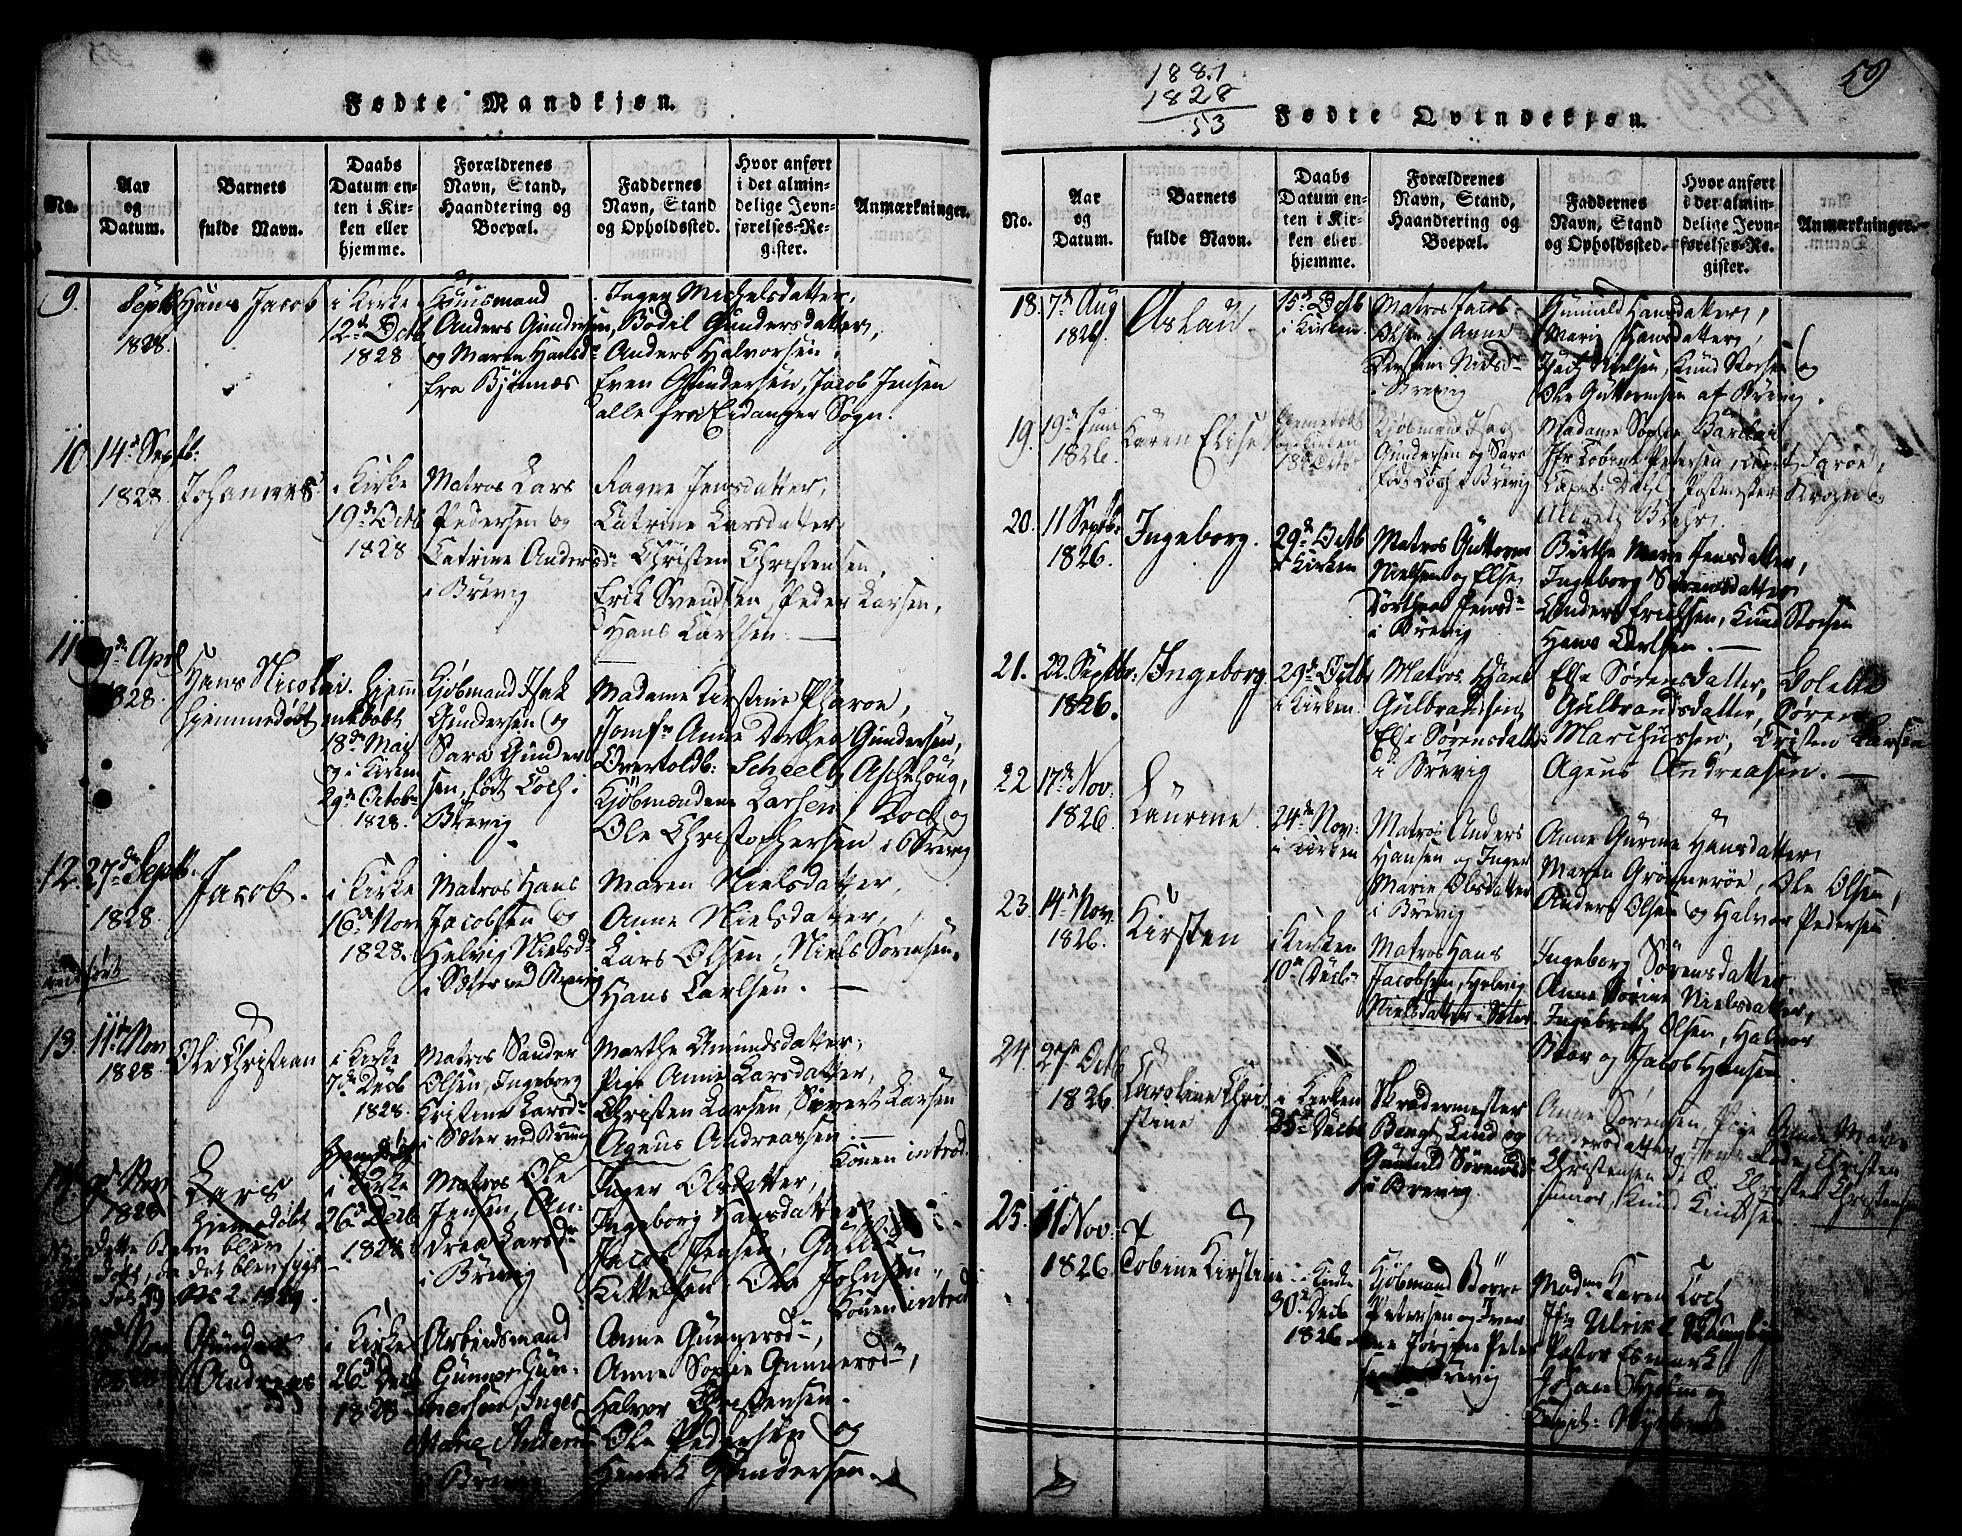 Fødte Mandkjøn.
No.
Aar
og
Datum.
Barnets
fulde Navn.
Daabs
Datum en-
ten i Kir-
ken eller
hjemme.
Forældrenes
Navn, Stand,
Haandtering og
Boepæl.
Faddernes
Navn, Stand
og Opholdssted.
Hvor anført
i det almin-
delige Jevn-
førelses-Re-
gister.
Anmærkninger.
9.
Septb
1828.
Hans Jacob
i Kirke
12te Octb
1828
Huusmand
Anders Gundersen,
og Maren Hansd
fra Bjønnæs
Inger Michelsdatter,
Bodil Gundersdatter,
Anders Halvorsen,
Even Gundersen, Jacob Jensen
alle fra Eidanger Sogn.
10
14de Septb.
1828.
Johannes
i Kirke
19de Octb
1828
Matros Lars
Pedersen og
Catrine Andersd
i Brevig
Ragne Jensdatter,
Catrine Larsdatter,
Christen Christensen,
Erik Svendsen, Peder Larsen,
Hans Carlsen.
11
9de April
1828.
Hans Nicolai.
hjemmedøbt
hjem
medøbt
18de Mai
og i Kirken
29de Octob
1828.
Kjøbmand Isak
Gundersen og
Sara Gunder
sen, født Coch i
Brevig
Madame Kirstine Pharoe,
Jomfr Anne Dorthea Gundersen,
Overtoldb: Scheel, Aschehoug,
Kjøbmændene Larsen, Koch og
Ole Christophersen i Brevig
12.
27de Septb.
1828.
Jacob.
i Kirke
16de Nov
1828.
Matros Hans
Jacobsen og
Helvig Nielsd
i Sæter ved Brevig
Maren Nielsdatter,
Anne Nielsdatter,
Lars Olsen, Niels Sørensen,
Hans Carlsen.
13.
11te Nov
1828
Ole Christian
i Kirke
7de Decb
1828.
Matros Sander
Olsen, Ingeborg
Kristine Larsd
i Sæter ved Brevig
Marthe Amundsdatter,
Pige Anne Larsdatter,
Christen Larsen, Sivert Larsen
Agens Andreassen
Konen introd.
14.
Nov
1828
Lars
Hjemedøbt
i Kirke
26de Decb
1828
Matros Ole
Jensen, An-
drea Larsd
i Brevig
Inger Olsdatter,
Ingeborg Hansdatter
Jacob Jensen,
Kittelsen Ole Johnsen,
Konen introd
Dette Barn blev
døbt, da det blev sygt
Fol 59 No 2. 1829.
Nov
1828
Gunder
Andreas
i Kirke
26de Decb
1828
Arbeidsmand
Gunner Gun-
nersen, Inger
Marie Anders
i Brevig
Anne Gunnersd,
Anne Sophie Gunnersd,
Halvor Christensen.
Ole Pedersen og
Henrik Gundersen.
1881
1828
53
59
Fødte Qvindekjøn.
No.
Aar
og
Datum.
Barnets
fulde Navn.
Daabs
Datum en-
ten i Kir-
ken eller
hjemme.
Forældrenes
Navn, Stand,
Haandtering og
Boepæl.
Faddernes
Navn, Stand
og Opholdssted.
Hvor anført
i det almin-
delige Jevn-
førelses-Re-
gister.
Anmærkninger.
18.
7de Aug
1826.
Aslau.
15de Octb
i Kirken.
Matros Jacob
Olsen og Anne
Kirstine Nielsd
i Brevig
Gunild Hansdatter,
Marie Hansdatter,
Isach Nielsen, Knud Stousen og
Ole Guttormsen af Brevig.
19.
19de Juni
1826.
Karen Elise
Hjemmedøbt
i Kirken
18de Octb
Kjøbmand Isach
Gundersen og Sara
født Coch i Brevig
Madame Sophie Barclai
Jfr Tobine Petersen
Capt: Dahl, Postmester Krogh
20.
11 Septb
1826.
Ingeborg.
29de Octb
i Kirken
Matros Guttorm
Nielsen og Else
Dorthea Jensd
i Brevig
Birthe Marie Jensdatter,
Ingeborg Sørensdatter,
Anders Erichsen, Knud Stousen
Hans Carlsen.
21.
22 Septbr
1826.
Ingeborg
29de Octb
i Kirken.
Matros Hans
Gulbrandsen,
Else Sørensdatter
i Brevig
Else Sørensdatter, Golette
Gulbrandsdatter, Søren
Marchussen, Cristen Larsen
Agens Andreasen.
22
17de Nov.
1826.
Laurine
24de Nov:
i Kirken
Matros Anders
Hansen og Inger
Marie Olsdatter
i Brevig
Anne Gurine Hansdatter,
Maren Grønnerøe, Ole Olsen,
Anders Olsen og Halvor Pedersen
23.
14de Nov
1826.
Kirsten
i Kirken
10de Decb
Matros Hans
Jacobsen, Helvig
Nielsdatter i Sæter.
Ingeborg Sørensdatter
Anne Sørine Nielsdatter,
Ingebreth Olsen, Halvor
Boer og Jacob Hansen
24
27de Octb
1826
Caroline Chri
stine
i Kirken
25de Decb
Skrædermester
Bengt Lind og
Gunild Sørensd
i Brevig.
Anne Sørensen, Pige Anne Marie
Andersdatter, Christen
Christensen d. Æ. Christen Christensen
junior, Knud Knudsen
25.
11 Nov:
1826.
Tobine Kirstine
i Kirke
30te Decb
1826
Kjøbmand Børre
Petersen og Iver
ine Jørgine Peter
sen i Brevig
Madme Karen Coch
Jfr Ulrike
Pastor Esmark,
Johan Holm og